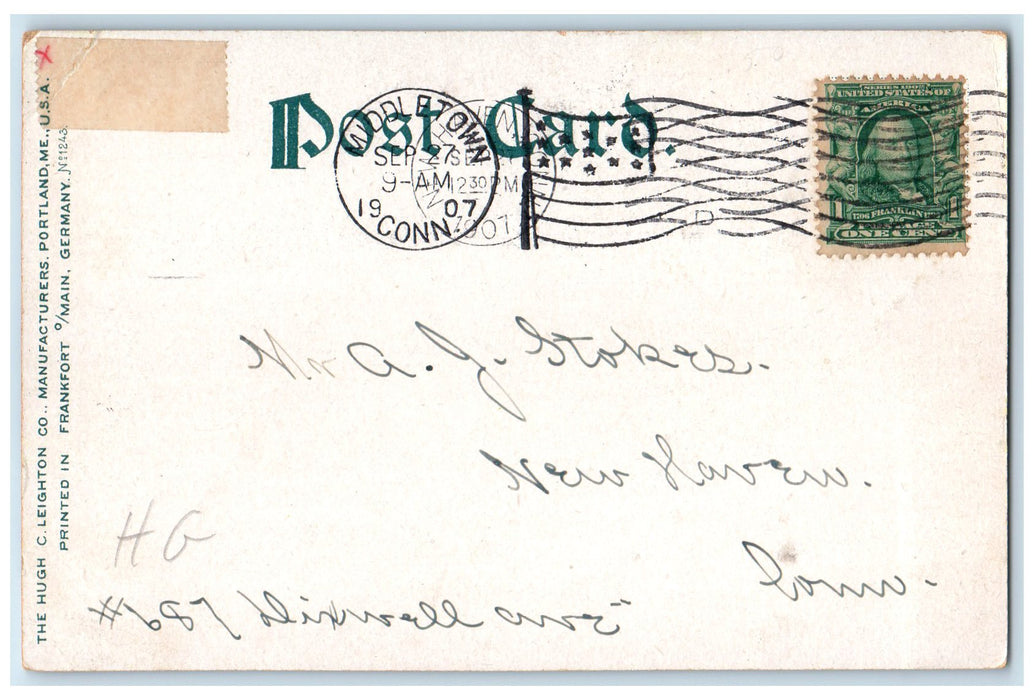 THE HUGH C. LEIGHTON CO., MANUFACTURERS, PORTLAND, ME., U.S.A.
PRINTED IN FRANKFORT o/MAIN, GERMANY. No 1243
Post Card.
MIDDLETOWN
SEP 27
9-AM
19 07
CONN.
12 30 PM
D
SERIES 1902
UNITED STATES OF
AMERICA
1 1706 FRANKLIN 1790 1
POSTAGE
ONE CENT
Mr A. J. Stokes.
New Haven.
Conn.
H G
#687 Dixwell ave